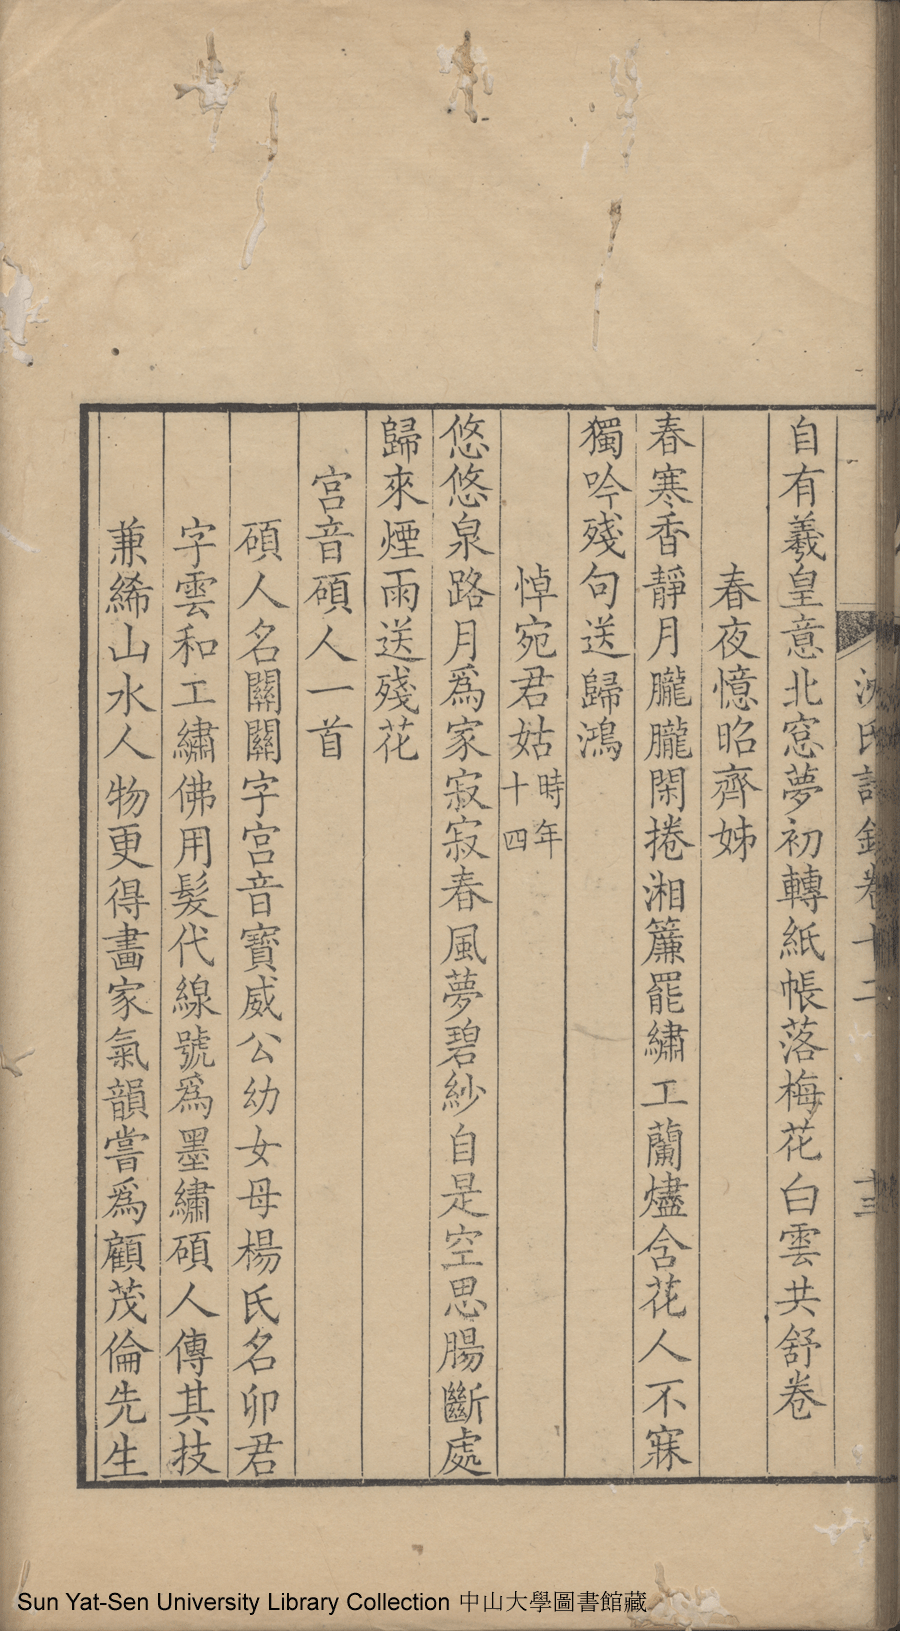 沈氏詩錄卷十二 十三
自有羲皇意北窓夢初轉紙帳落梅花白雲共舒卷
春夜憶昭齊姊
春寒香靜月朧朧閑捲湘簾罷繡工蘭燼含花人不寐
獨吟殘句送歸鴻
悼宛君姑時年十四
悠悠泉路月爲家寂寂春風夢碧紗自是空思腸斷處
歸來煙雨送殘花
宮音碩人一首
碩人名關關字宮音寶威公幼女母楊氏名卯君
字雲和工繡佛用髮代線號爲墨繡碩人傳其技
兼絺山水人物更得畵家氣韻嘗爲顧茂倫先生
Sun Yat-Sen University Library Collection 中山大學圖書館藏